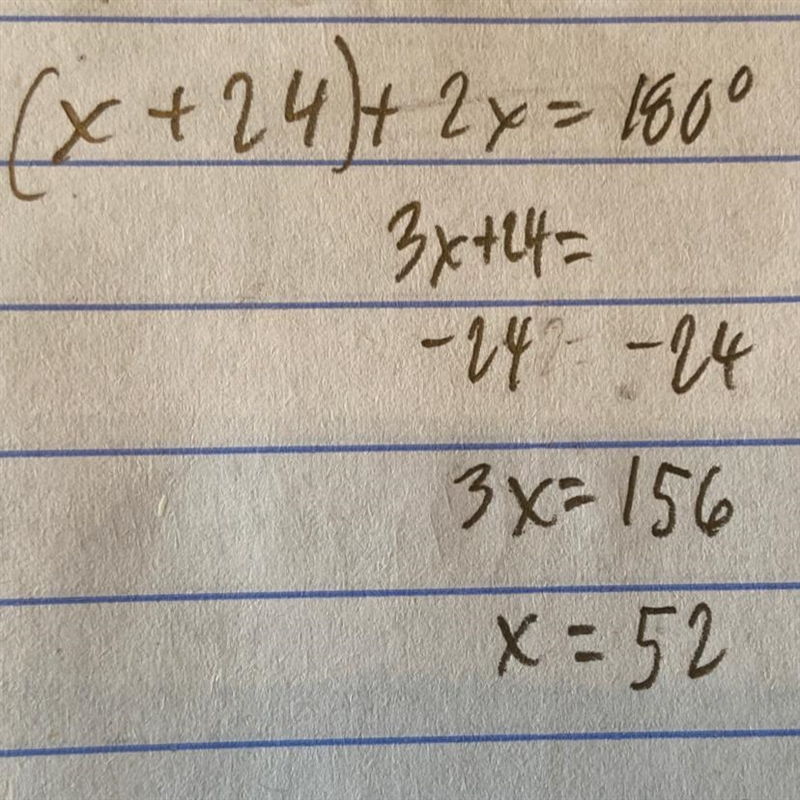 (x + 24) + 2x = 180°
3x+24=
-24 -24
3x= 156
x = 52